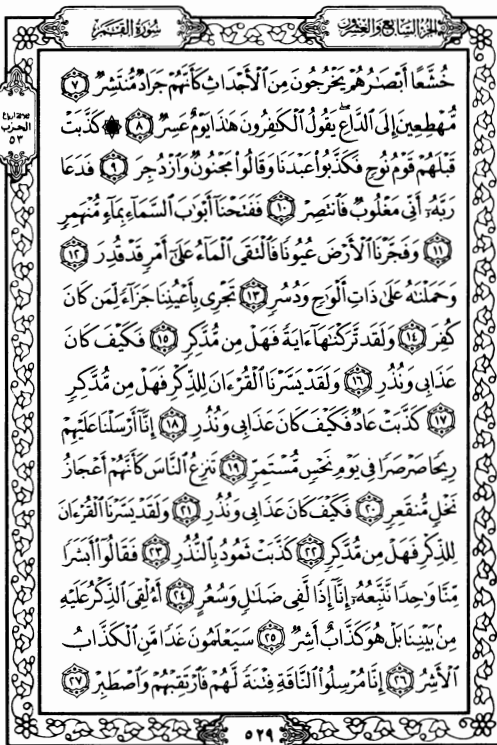 الجزء السابع والعشرون
سورة القمر
خُشَّعًا أَبْصَٰرُهُمْ يَخْرُجُونَ مِنَ ٱلْأَجْدَاثِ كَأَنَّهُمْ جَرَادٌ مُّنتَشِرٌ ٧
مُّهْطِعِينَ إِلَى ٱلدَّاعِ ۖ يَقُولُ ٱلْكَٰفِرُونَ هَٰذَا يَوْمٌ عَسِرٌ ٨ ۞ كَذَّبَتْ
ثلاثة أرباع
الحزب
٥٣
قَبْلَهُمْ قَوْمُ نُوحٍ فَكَذَّبُوا۟ عَبْدَنَا وَقَالُوا۟ مَجْنُونٌ وَٱزْدُجِرَ ٩ فَدَعَا
رَبَّهُۥٓ أَنِّى مَغْلُوبٌ فَٱنتَصِرْ ١٠ فَفَتَحْنَآ أَبْوَٰبَ ٱلسَّمَآءِ بِمَآءٍ مُّنْهَمِرٍ
١١ وَفَجَّرْنَا ٱلْأَرْضَ عُيُونًا فَٱلْتَقَى ٱلْمَآءُ عَلَىٰٓ أَمْرٍ قَدْ قُدِرَ ١٢
وَحَمَلْنَٰهُ عَلَىٰ ذَاتِ أَلْوَٰحٍ وَدُسُرٍ ١٣ تَجْرِى بِأَعْيُنِنَا جَزَآءً لِّمَن كَانَ
كُفِرَ ١٤ وَلَقَد تَّرَكْنَٰهَآ ءَايَةً فَهَلْ مِن مُّدَّكِرٍ ١٥ فَكَيْفَ كَانَ
عَذَابِى وَنُذُرِ ١٦ وَلَقَدْ يَسَّرْنَا ٱلْقُرْءَانَ لِلذِّكْرِ فَهَلْ مِن مُّدَّكِرٍ
١٧ كَذَّبَتْ عَادٌ فَكَيْفَ كَانَ عَذَابِى وَنُذُرِ ١٨ إِنَّآ أَرْسَلْنَا عَلَيْهِمْ
رِيحًا صَرْصَرًا فِى يَوْمِ نَحْسٍ مُّسْتَمِرٍّ ١٩ تَنزِعُ ٱلنَّاسَ كَأَنَّهُمْ أَعْجَازُ
نَخْلٍ مُّنقَعِرٍ ٢٠ فَكَيْفَ كَانَ عَذَابِى وَنُذُرِ ٢١ وَلَقَدْ يَسَّرْنَا ٱلْقُرْءَانَ
لِلذِّكْرِ فَهَلْ مِن مُّدَّكِرٍ ٢٢ كَذَّبَتْ ثَمُودُ بِٱلنُّذُرِ ٢٣ فَقَالُوٓا۟ أَبَشَرًا
مِّنَّا وَٰحِدًا نَّتَّبِعُهُۥٓ إِنَّآ إِذًا لَّفِى ضَلَٰلٍ وَسُعُرٍ ٢٤ أَءُلْقِىَ ٱلذِّكْرُ عَلَيْهِ
مِنۢ بَيْنِنَا بَلْ هُوَ كَذَّابٌ أَشِرٌ ٢٥ سَيَعْلَمُونَ غَدًا مَّنِ ٱلْكَذَّابُ
ٱلْأَشِرُ ٢٦ إِنَّا مُرْسِلُوا۟ ٱلنَّاقَةِ فِتْنَةً لَّهُمْ فَٱرْتَقِبْهُمْ وَٱصْطَبِرْ ٢٧
٥٢٩